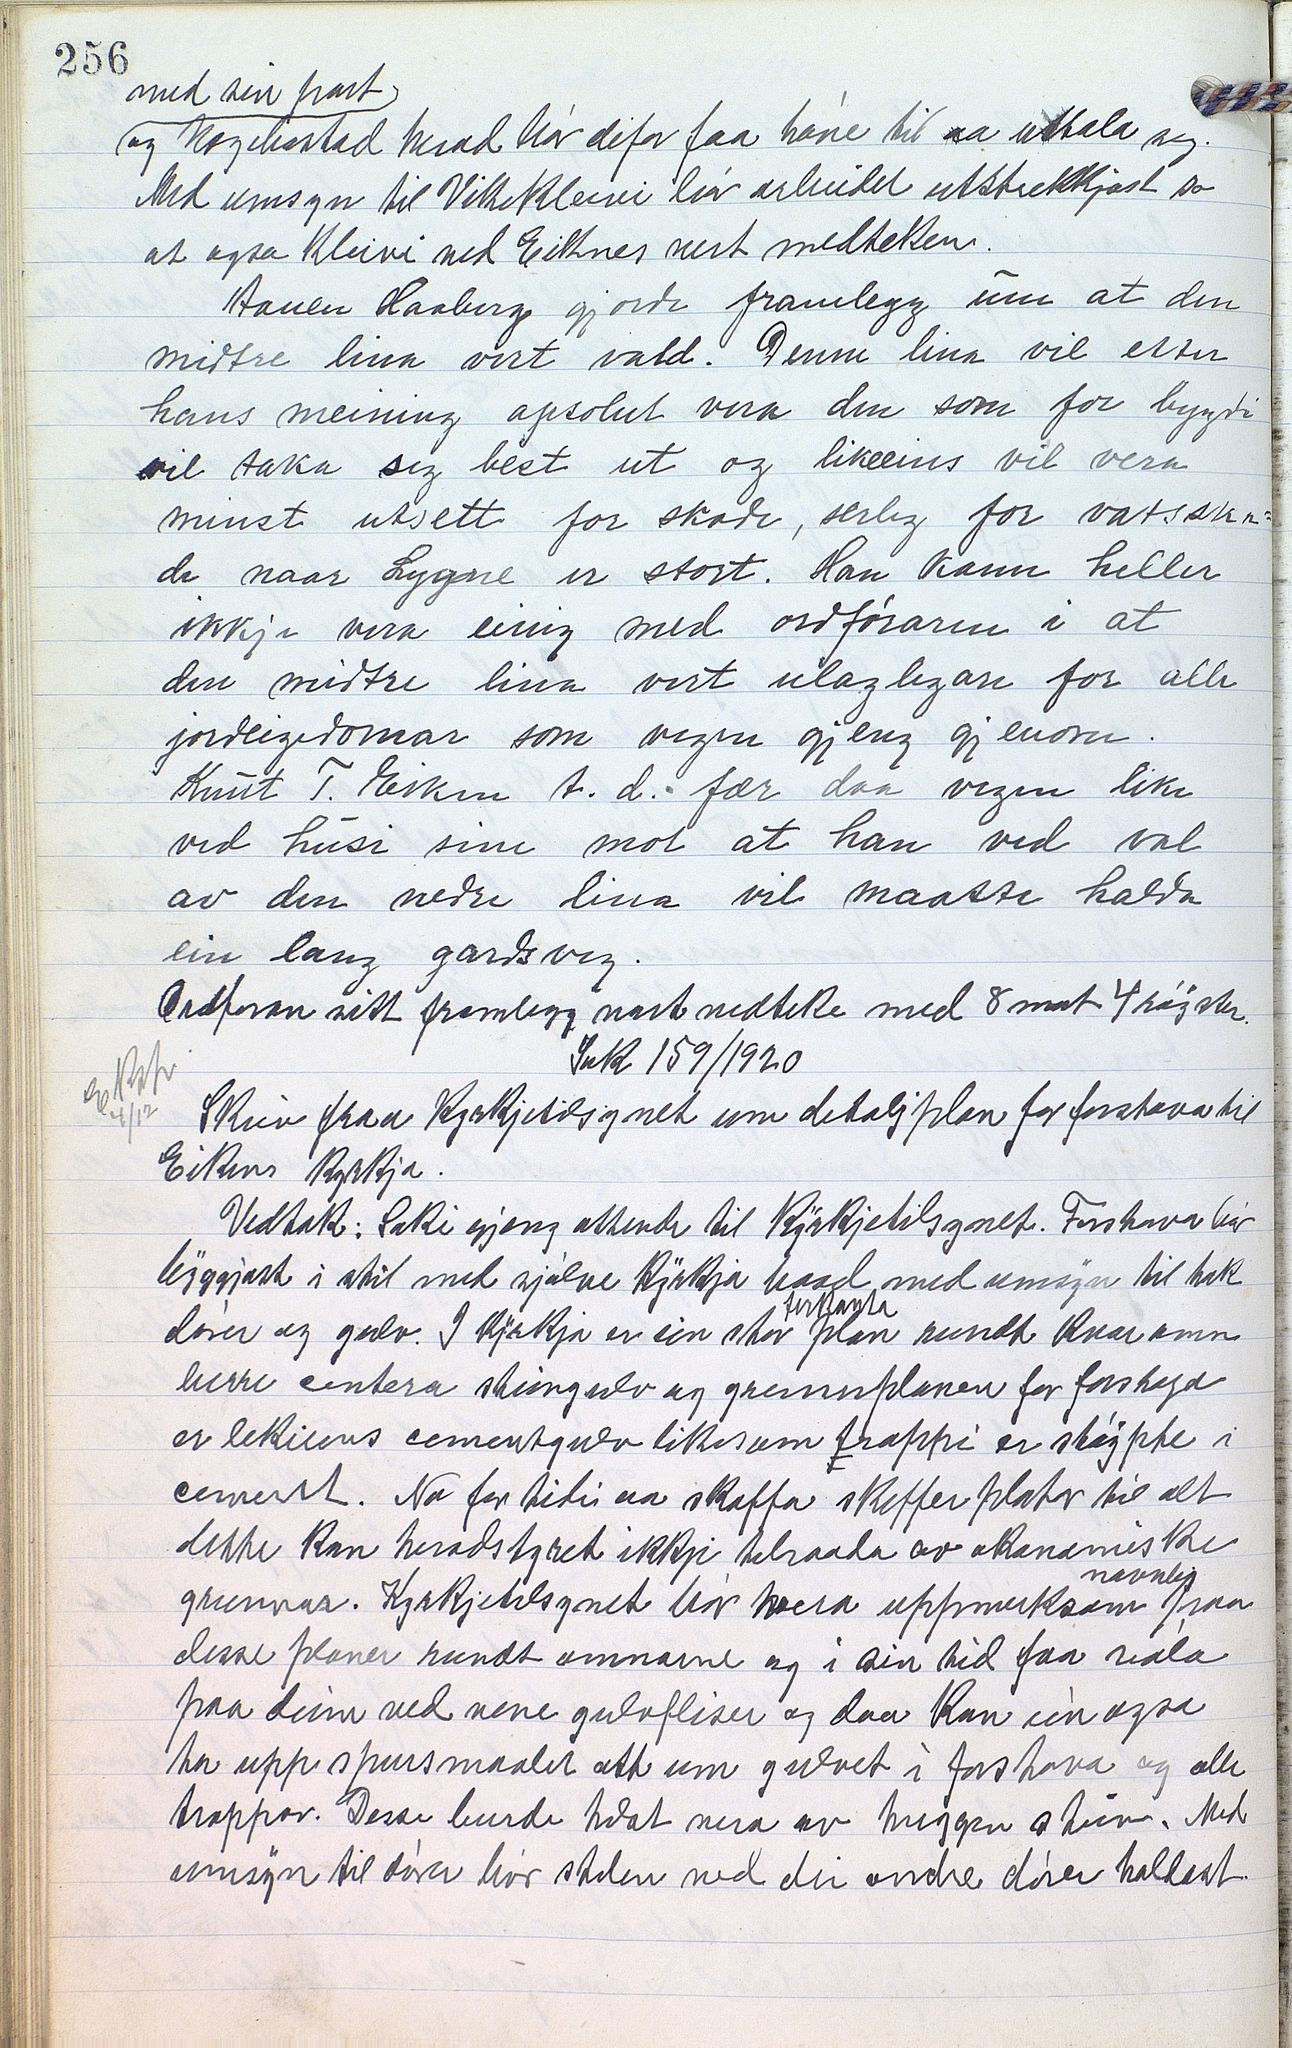 256
med sin prost
og Hægebostad herad bör difor faa höve til aa uttala seg.
Med umsyn til Vikekleivi bör arbeidet utstrekkjast so
at ogsa Kleivi ved Eiknes vert medteken.
Haaberg gjorde framlegg um at den
midtre lina vert vald. Denne lina vil etter
hans meining apsolut vera den som for bygdi
vil taka seg best ut og likeeins vil vera
minst utsett for skade, serleg for vatsska=
de naar Lygne er stort. Han kann heller
ikkje vera einig med ordföraren i at
den midtre lina vert ulaglegare for alle
jordeigedomar som vegen gjeng gjenom.
Knut T. Eiken t. d. fær daa vegen like
ved husi sine mot at han ved val
av den nedre lina vil maatte halda
ein lang gardsveg.
Ordföraren sitt framlegg vart vedteke med 8 mot 4 röyster.
Sak 159/1920
Ekspr.
4/12
Skriv fraa Kyrkjetilsynet um detaljplan for forstova til
Eikens kyrkja.
Vedtak: Saki gjeng attende til Kyrkjetilsynet. Forstova bör
byggjast i stil med sjølve kyrkja baad med umsyn til tak
dörer og gulv. I kyrkja er ein stor firkanta plan rundt kvar omn
berre sementera steingulv og grunnplanen for forstoga
er likeeins cementgulv likesom trappi er stöypte i
cement. No for tidi aa skaffa skiferplator til alt
dette kan heradstyret ikkje tilraada av økonomiske
grunnar. Kyrkjetilsynet bör vera uppmerksam navnleg paa
desse planer rundt omnarne og i sin tid faa
paa deim ved nove gulvfliser og daa kan ein ogsa
ta upp spursmaalet att um gulvet i forstova og alle
trappor. Desse burde helst vera av huggen stein. Med
umsyn til dörer bör stilen ved dei andre dörer haldast